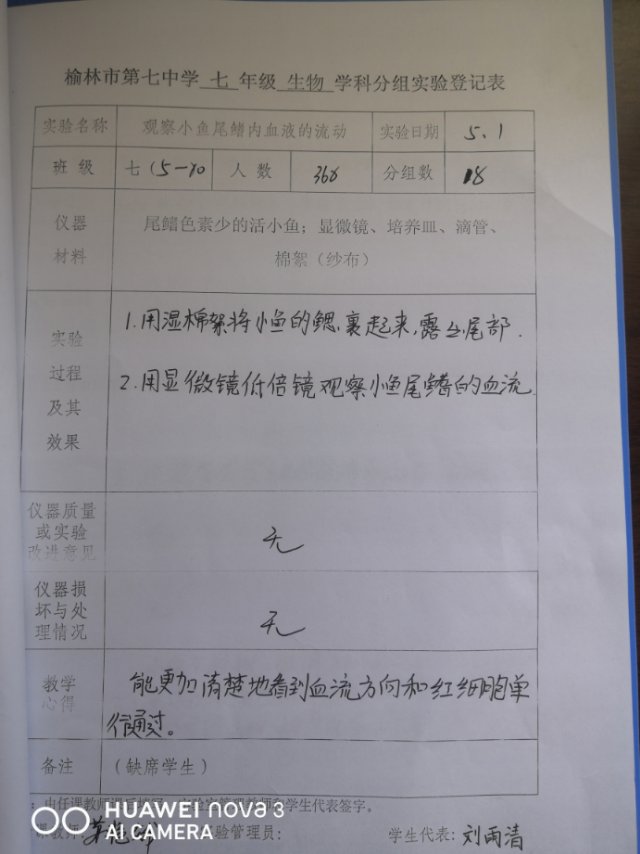 榆林市第七中学 七 年级 生物 学科分组实验登记表
实验名称 观察小鱼尾鳍内血液的流动 实验日期 5、1
班级 七（5-10 人数 366 分组数 18
仪器材料 尾鳍色素少的活小鱼；显微镜、培养皿、滴管、
棉絮（纱布）
实验过程及其效果
1.用湿棉絮将小鱼的鳃裹起来,露出尾部.
2.用显微镜低倍镜观察小鱼尾鳍的血流
仪器质量或实验改进意见 无
仪器损坏与处理情况 无
教学心得 能更加清楚地看到血流方向和红细胞单
行通过。
备注 （缺席学生）
学生代表签字。
HUAWEI nova 3
AI CAMERA
验管理员： 学生代表：刘雨清